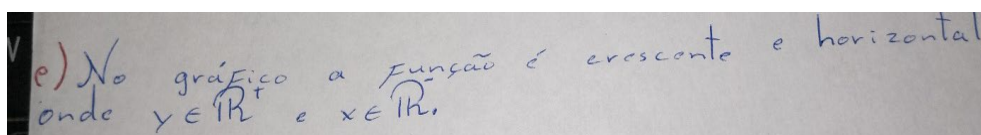 e) No gráfico a função é crescente e horizontal
onde y ∈ ℝ⁺ e x ∈ ℝ⁻.